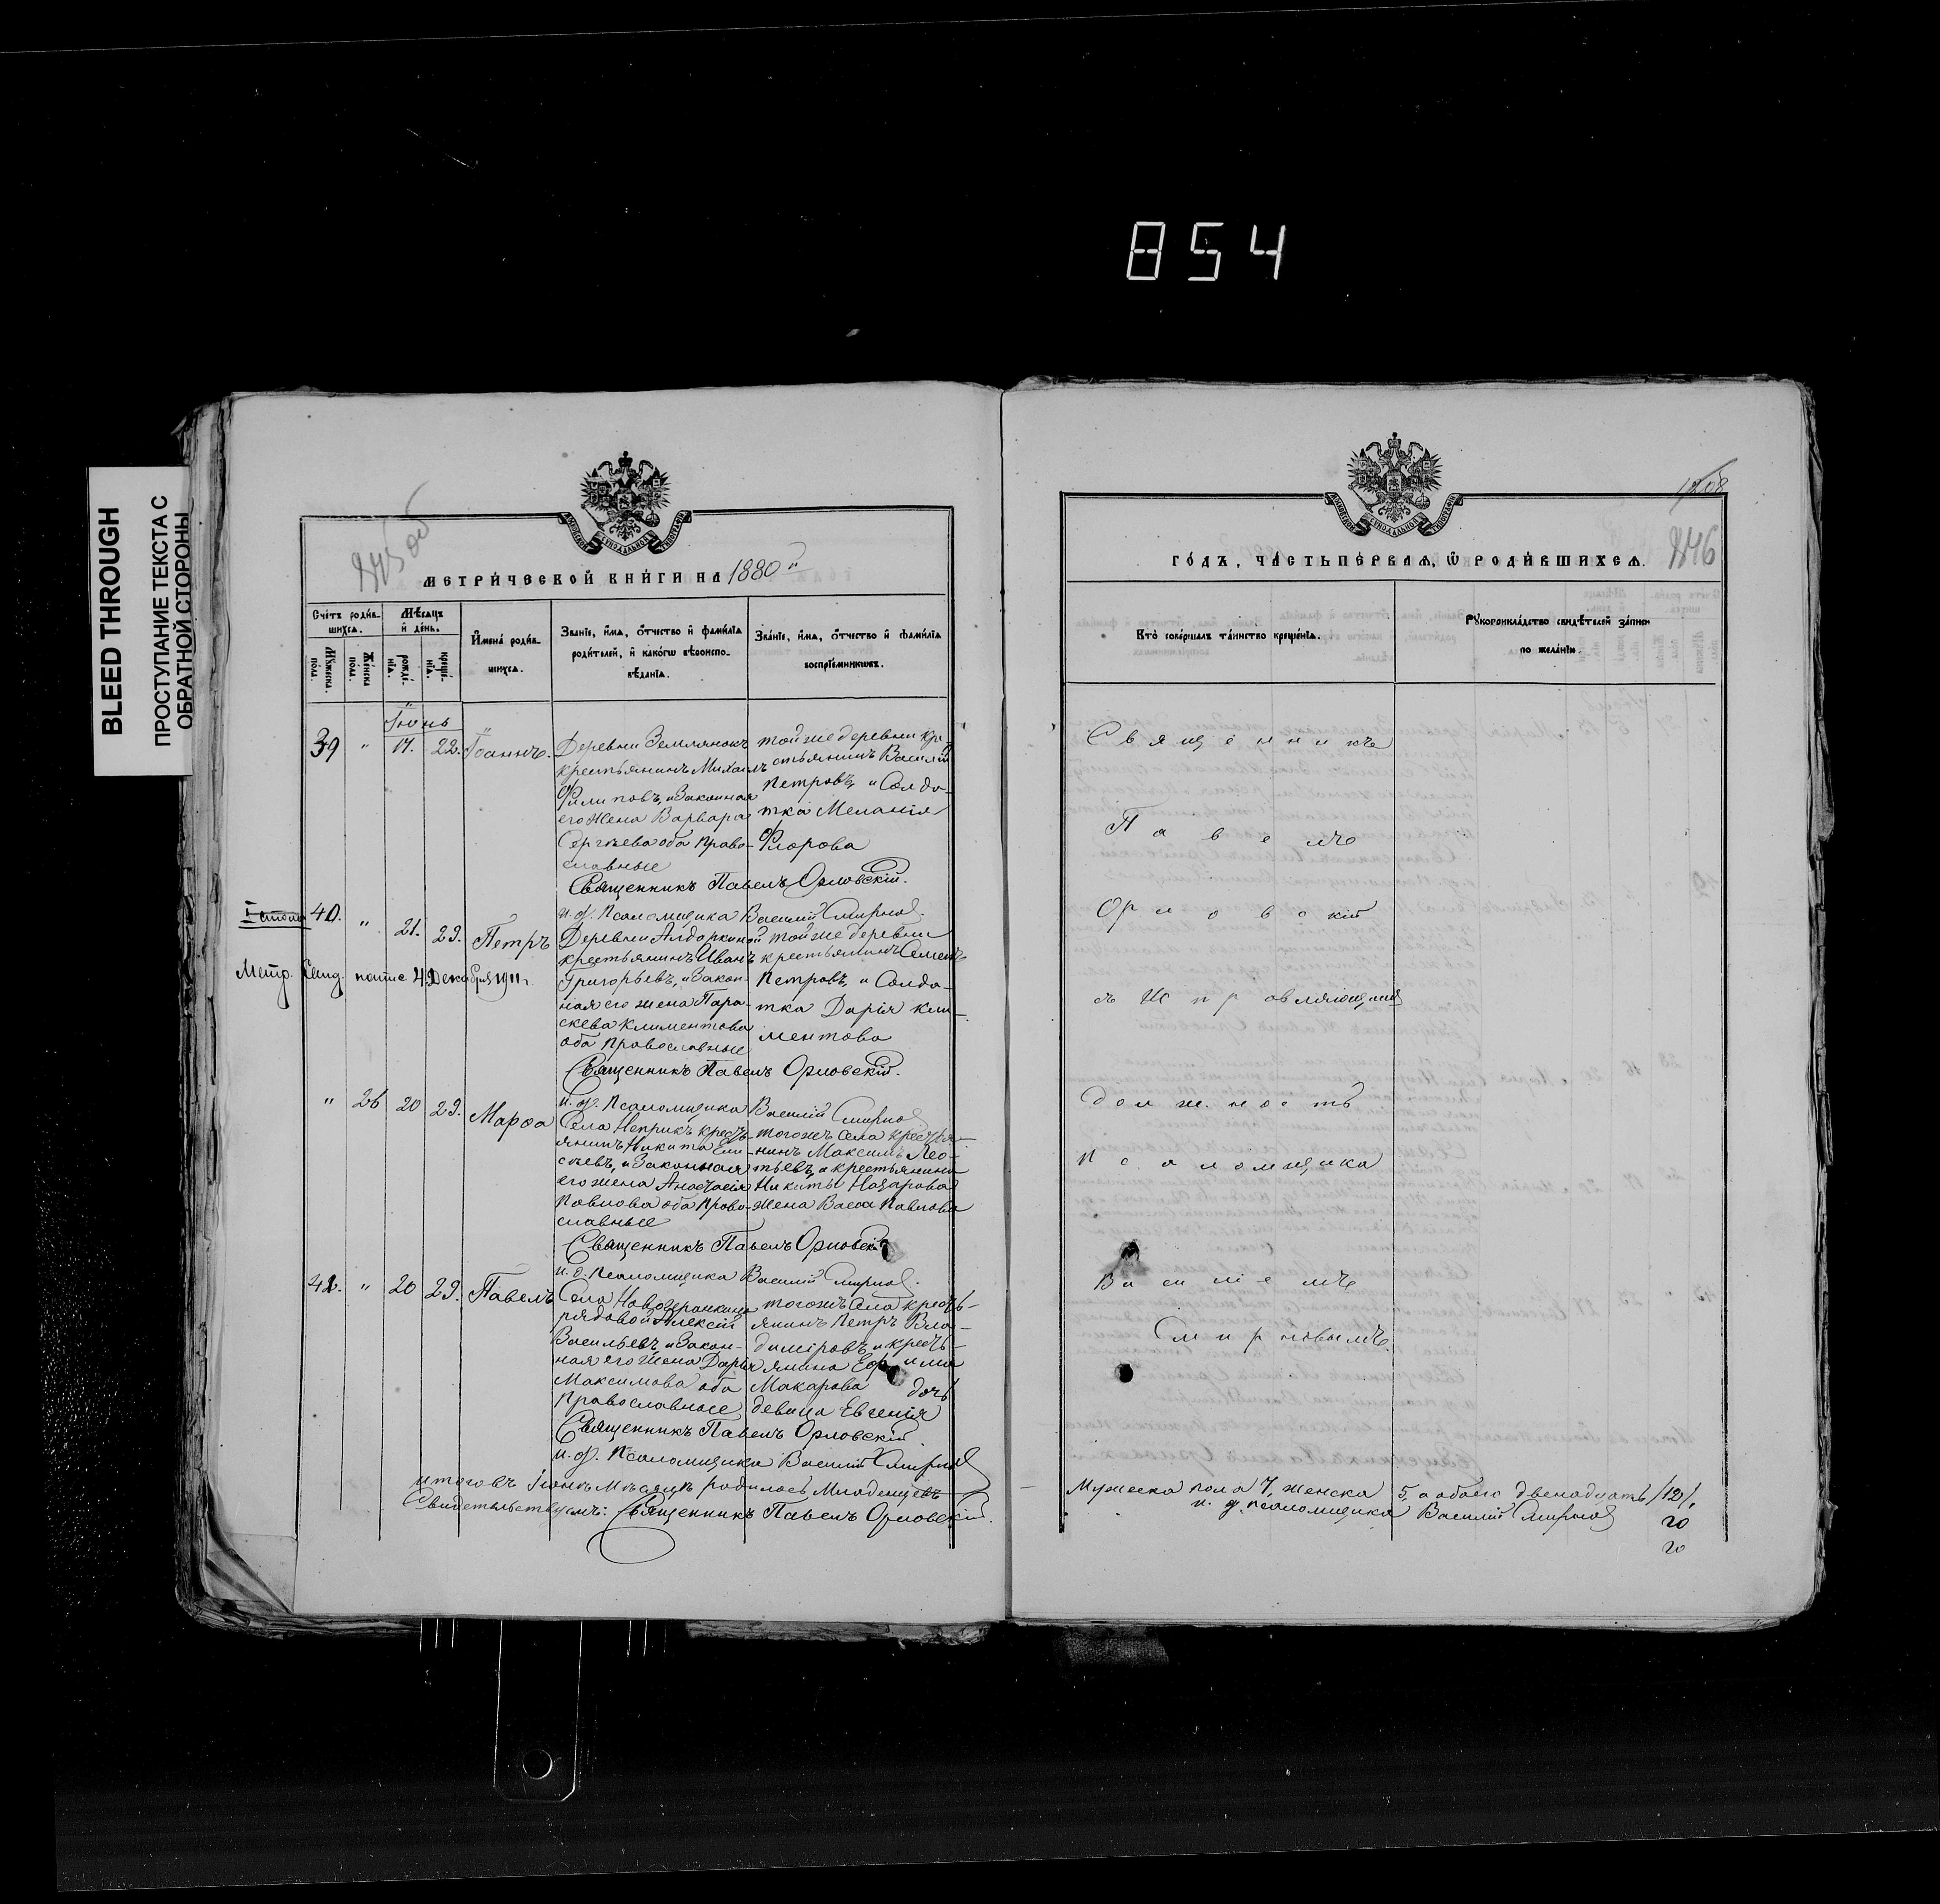 854
BLEED THROUGH
ПРОСТУПАНИЕ ТЕКСТА С
ОБРАТНОЙ СТОРОНЫ
МЕТРИЧЕСКОЙ КНИГИ НА 1880 й
Счетъ родив-
шихся.
Мѣсяцъ
и день.
Мужеска пола.
Женска пола.
рожде-
нія.
креще-
нія.
Имена родив-
шихся.
Званіе, имя, отчество и фамилія
родителей, и какогѡ вѣроиспо-
вѣданія.
Званіе, имя, отчество и фамилія
воспріемниковъ.
Іюнь
39 " 17. 22. Іоаннъ.
Деревни Землянокъ
крестьянинъ Михаилъ
Филиповъ, и Законная
его жена Варвара
Сергѣева оба право-
славные
тойже деревни кре-
стьянинъ Василій
Петровъ, и Солда-
тка Меланія
Флорова
Священникъ Павелъ Орловскій.
и. д. Псаломщика Василій Смирнов.
40. " 21. 29. Петръ
Метр. 4 Декабря 1911 г.
Деревни Алдоркиной
крестьянинъ Иванъ
Григорьевъ, и Закон-
ная его жена Пара-
скева Климентова
оба Православные
тойже деревни
крестьянинъ Семенъ
Петровъ, и Солда-
тка Дарія Кли-
ментова
Священникъ Павелъ Орловскій.
и. д. Псаломщика Василій Смирнов
" 26 20 29. Марѳа
Села Неприкъ крестъ-
янинъ Никита Ели-
сѣевъ, и Законная
его жена Анастасія
Павлова оба Право-
славные
тогожъ Села крестья-
нинъ Максимъ Лео-
тьевъ, и крестьянина
Никиты Назарова
жена Васса Павлова
Священникъ Павелъ Орловскій
и. д. Псаломщика Василій Смирнов.
41. " 20 29. Павелъ
Села
рядовой Алексій
Васильевъ и Закон-
ная его жена Дарья
Максимова оба
Православные
тогожъ Села кресть-
янинъ Петръ Вла-
диміровъ, и кресть-
янина
Макарова дочь
девица Евгенія
Священникъ Павелъ Орловскій
и. д. Псаломщика Василій Смирнов
итого въ Іюнѣ Мѣсяцѣ родилось Младенцевъ
Свидетельствуемъ: Священникъ Павелъ Орловскій.
1208
846
ГОДЪ, ЧАСТЬ ПЕРВАЯ, Ѡ РОДИВШИХСЯ.
Кто совершалъ таинство крещенія.
Рукоприкладство свидѣтелей записи
по желанію.
Священникъ
Павелъ
Орловскій
съ Исправляющимъ
должность
псаломщика
Василіемъ
Смирновымъ.
Мужеска пола 7, женска 5, а обоего двенадцать /12/.
и. д. псаломщика Василій Смирнов